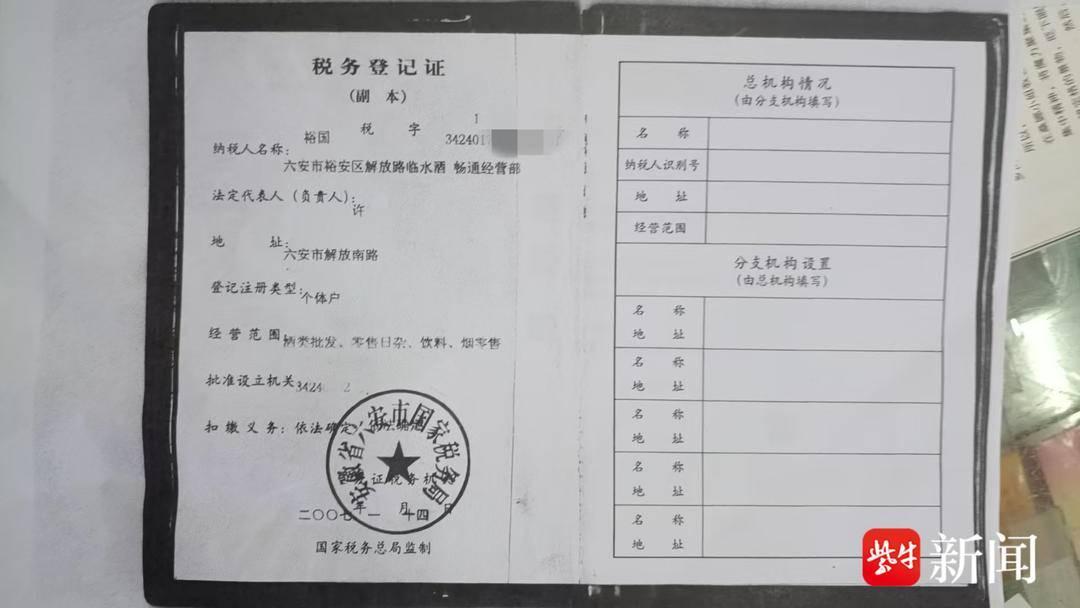 税务登记证
(副 本)
裕国 税 字 342401 1
纳税人名称:
六安市裕安区解放路临水酒 畅通经营部
法定代表人(负责人):
许
地 址:
六安市解放南路
登记注册类型:
个体户
经营范围
酒类批发、零售日杂、饮料、烟零售
批准设立机关
3424 2
扣缴义务:依法确定
安徽省六安市国家税务局
发证税务机
二〇〇七年一月十四日
国家税务总局监制
总机构情况
(由分支机构填写)
名 称
纳税人识别号
地 址
经营范围
分支机构设置
(由总机构填写)
名 称
地 址
名 称
地 址
名 称
地 址
名 称
地 址
名 称
地 址
紫牛 新闻